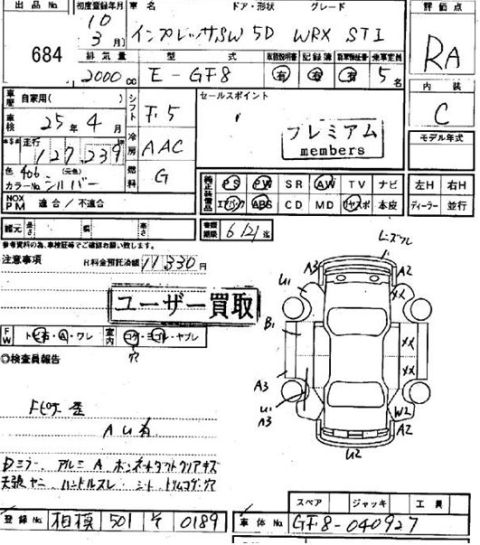 出品No. 初度登録年月 車名 ドア・形状 グレード 評価点
684
10年 3月 インプレッサSW 5D WRX STI RA
排気量 型式 取扱説明書 記録簿 新車保証書 乗車定員 内装
2000cc E-GF8 有 有 有 5名 C
車歴 自家用( ) シフト F.5 セールスポイント
車検 25年4月 冷房 AAC プレミアム
members
モデル年式
走行 127,239 燃料 G
色 406 (元色)
カラーNo. シルバー
純正装備品 PS PW SR AW TV ナビ 左H 右H
エアバック ABS CD MD 革シート 本皮 ディーラー 並行
NOX
PM 適合/不適合
諸元 長さ 幅 高さ
書類期限 6/21迄
参考資料の為、車検証等でご確認お願い致します。
注意事項 R料金預託済額 11,330円
ユーザー買取
FW トビ石・A・ワレ 室内 コゲ・ヨゴレ・ヤブレ
穴
◎検査員報告
AU有
Dミラー アルミA
天張ヤニ ハンドルスレ シート
A3 A2
U1 XX
B1 XX
A3 XX
U1 W2
A3 A2
U2
スペア ジャッキ 工具
登録No. 相模 501 そ 0189 車体No. GF8-040927